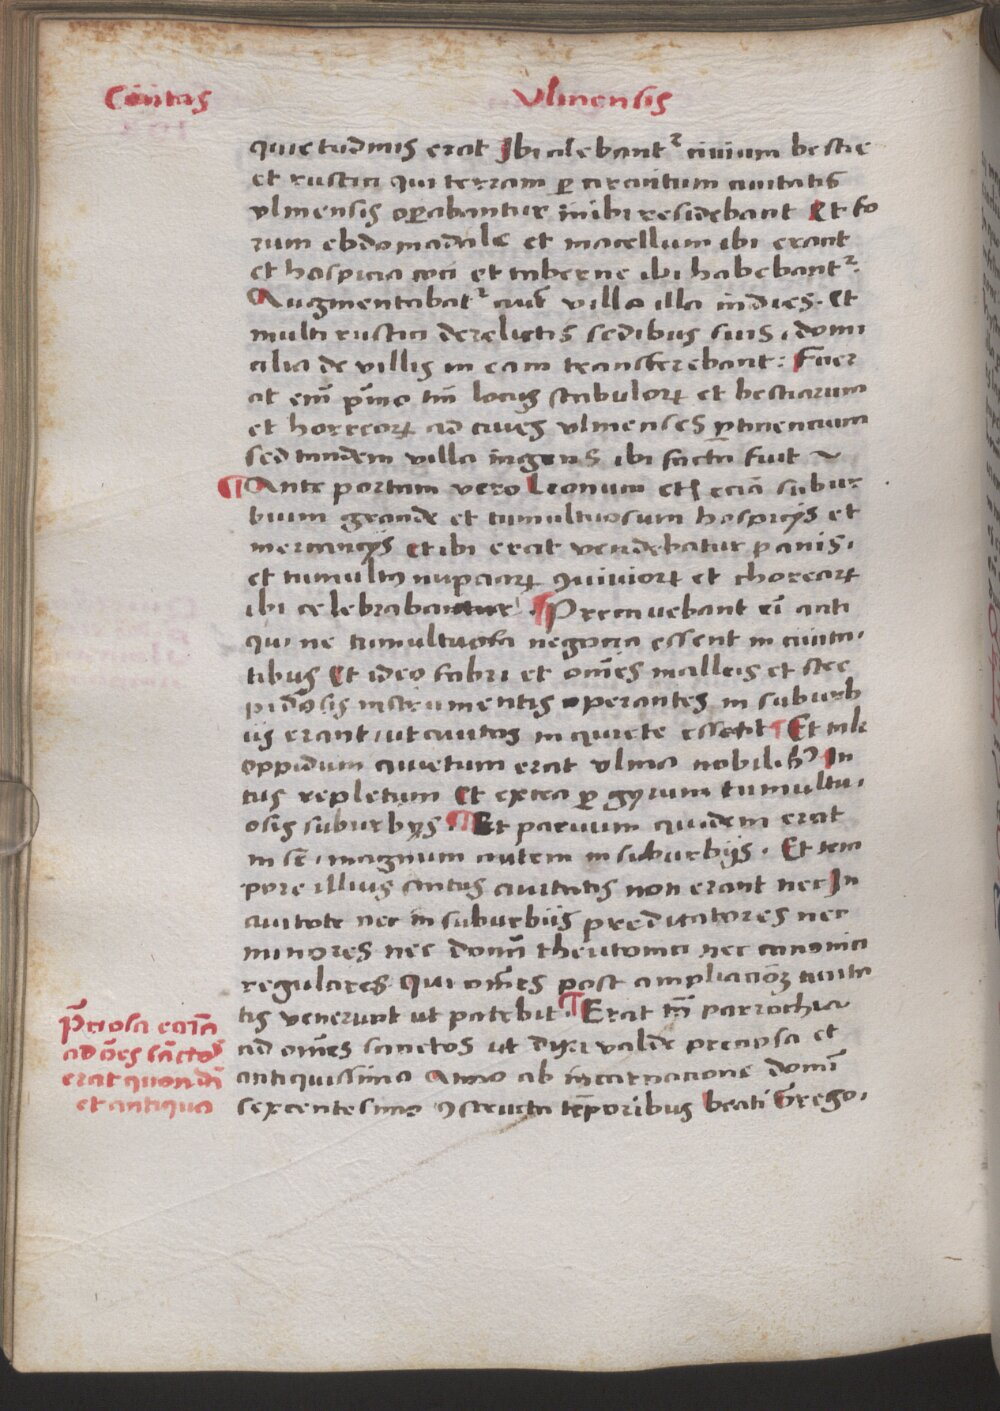 Ciuitas Vlmensis
quietudinis erat Ibi alebantᷣ ciuium bestie
et rustici qui terram ꝑ circuitum ciuitatis
vlmensis oꝑabantur inibi residebant Et fo
rum ebdomadale et macellum ibi erant
et hospicia coci et taberne ibi habebantᷣ.
Augmentabatᷣ aut̄ villa illa indies. Et
multi rustici derelictis sedibus suis, domi
cilia de villis in eam transferebant: Fuer
at em̄ pͥmo tm̄ locus stabuloꝝ et bestiarum
et horreoꝝ ad ciues vlmenses ꝑtinencium
sed tandem villa ingens ibi facta fuit ~
¶ Ante portam vero Leonum etꝉ eciā subur
bium grande et tumultuosum hospicijs et
mercancijs et ibi erat vendebatur panis,
et tumultꝰ nupciaꝝ ꝯuiuioꝝ et choreaꝝ
ibi celebrabantur. ¶ Precauebant ei̅ anti
qui ne tumultuosa negocia essent in ciuita,
tibus Et ideo fabri et om̄es malleis et stre
pidosis instrumentis operantes in suburb
iis erant, ut ciuitas in quiete essetit ¶ Et tale
oppidum quietum erat vlma nobilibꝰ In
tus repletum Et extra ꝑ gyrum tumultu,
osis suburbijs. ¶ Et paruum quidem erat
in se̅, magnum autem in suburbijs. Et tem
pore illius ciuitatis non erant nec In
ciuitate nec in suburbiis predicatores nec
minores nec domi̅ theutonici nec canonici
regulares. Qui om̄es post ampliaciōꝫ ciuita
tis venerunt ut patebit. ¶ Erat tn̄ parrochia
ad om̄es sanctos ut dixi valde preciosa et
antiquissima Anno ab incarnacione domi̅
sexcentesimo ꝯstructa tēporibus beati Grego,
P̄ciosa eccīa
ad ōes sāctos
erat quondā
et antiqua